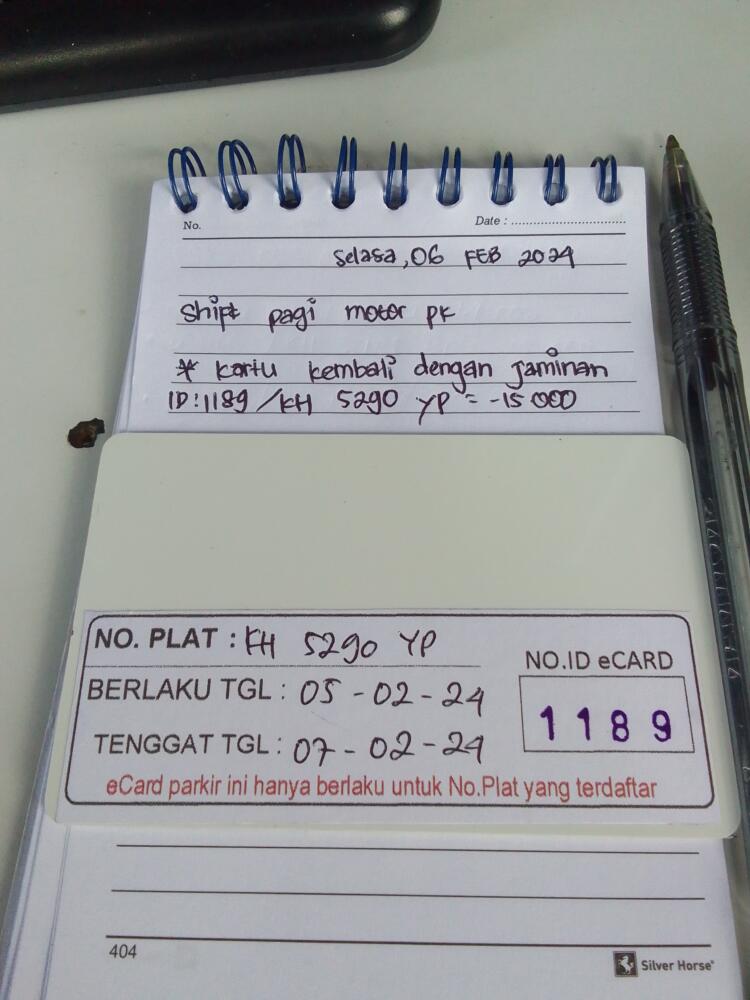 No.
Date : ..............................
Selasa, 06 FEB 2024
Shift pagi motor PK
* Kartu kembali dengan jaminan
ID: 1189 / KH 5290 YP = -15 000
NO. PLAT : KH 5290 YP
BERLAKU TGL : 05 - 02 - 24
TENGGAT TGL : 07 - 02 - 24
NO.ID eCARD
1189
eCard parkir ini hanya berlaku untuk No.Plat yang terdaftar
404
Silver Horse